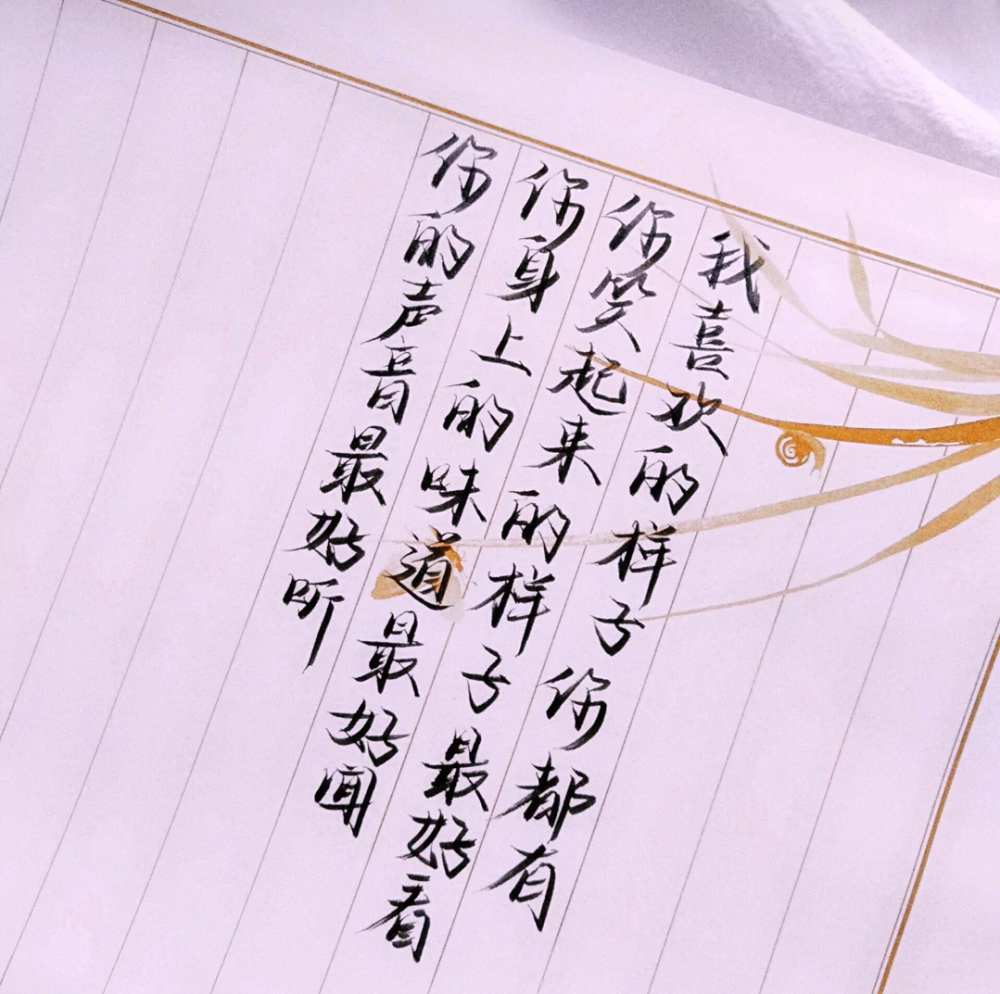 我喜欢的样子你都有
你笑起来的样子最好看
你身上的味道最好闻
你的声音最好听